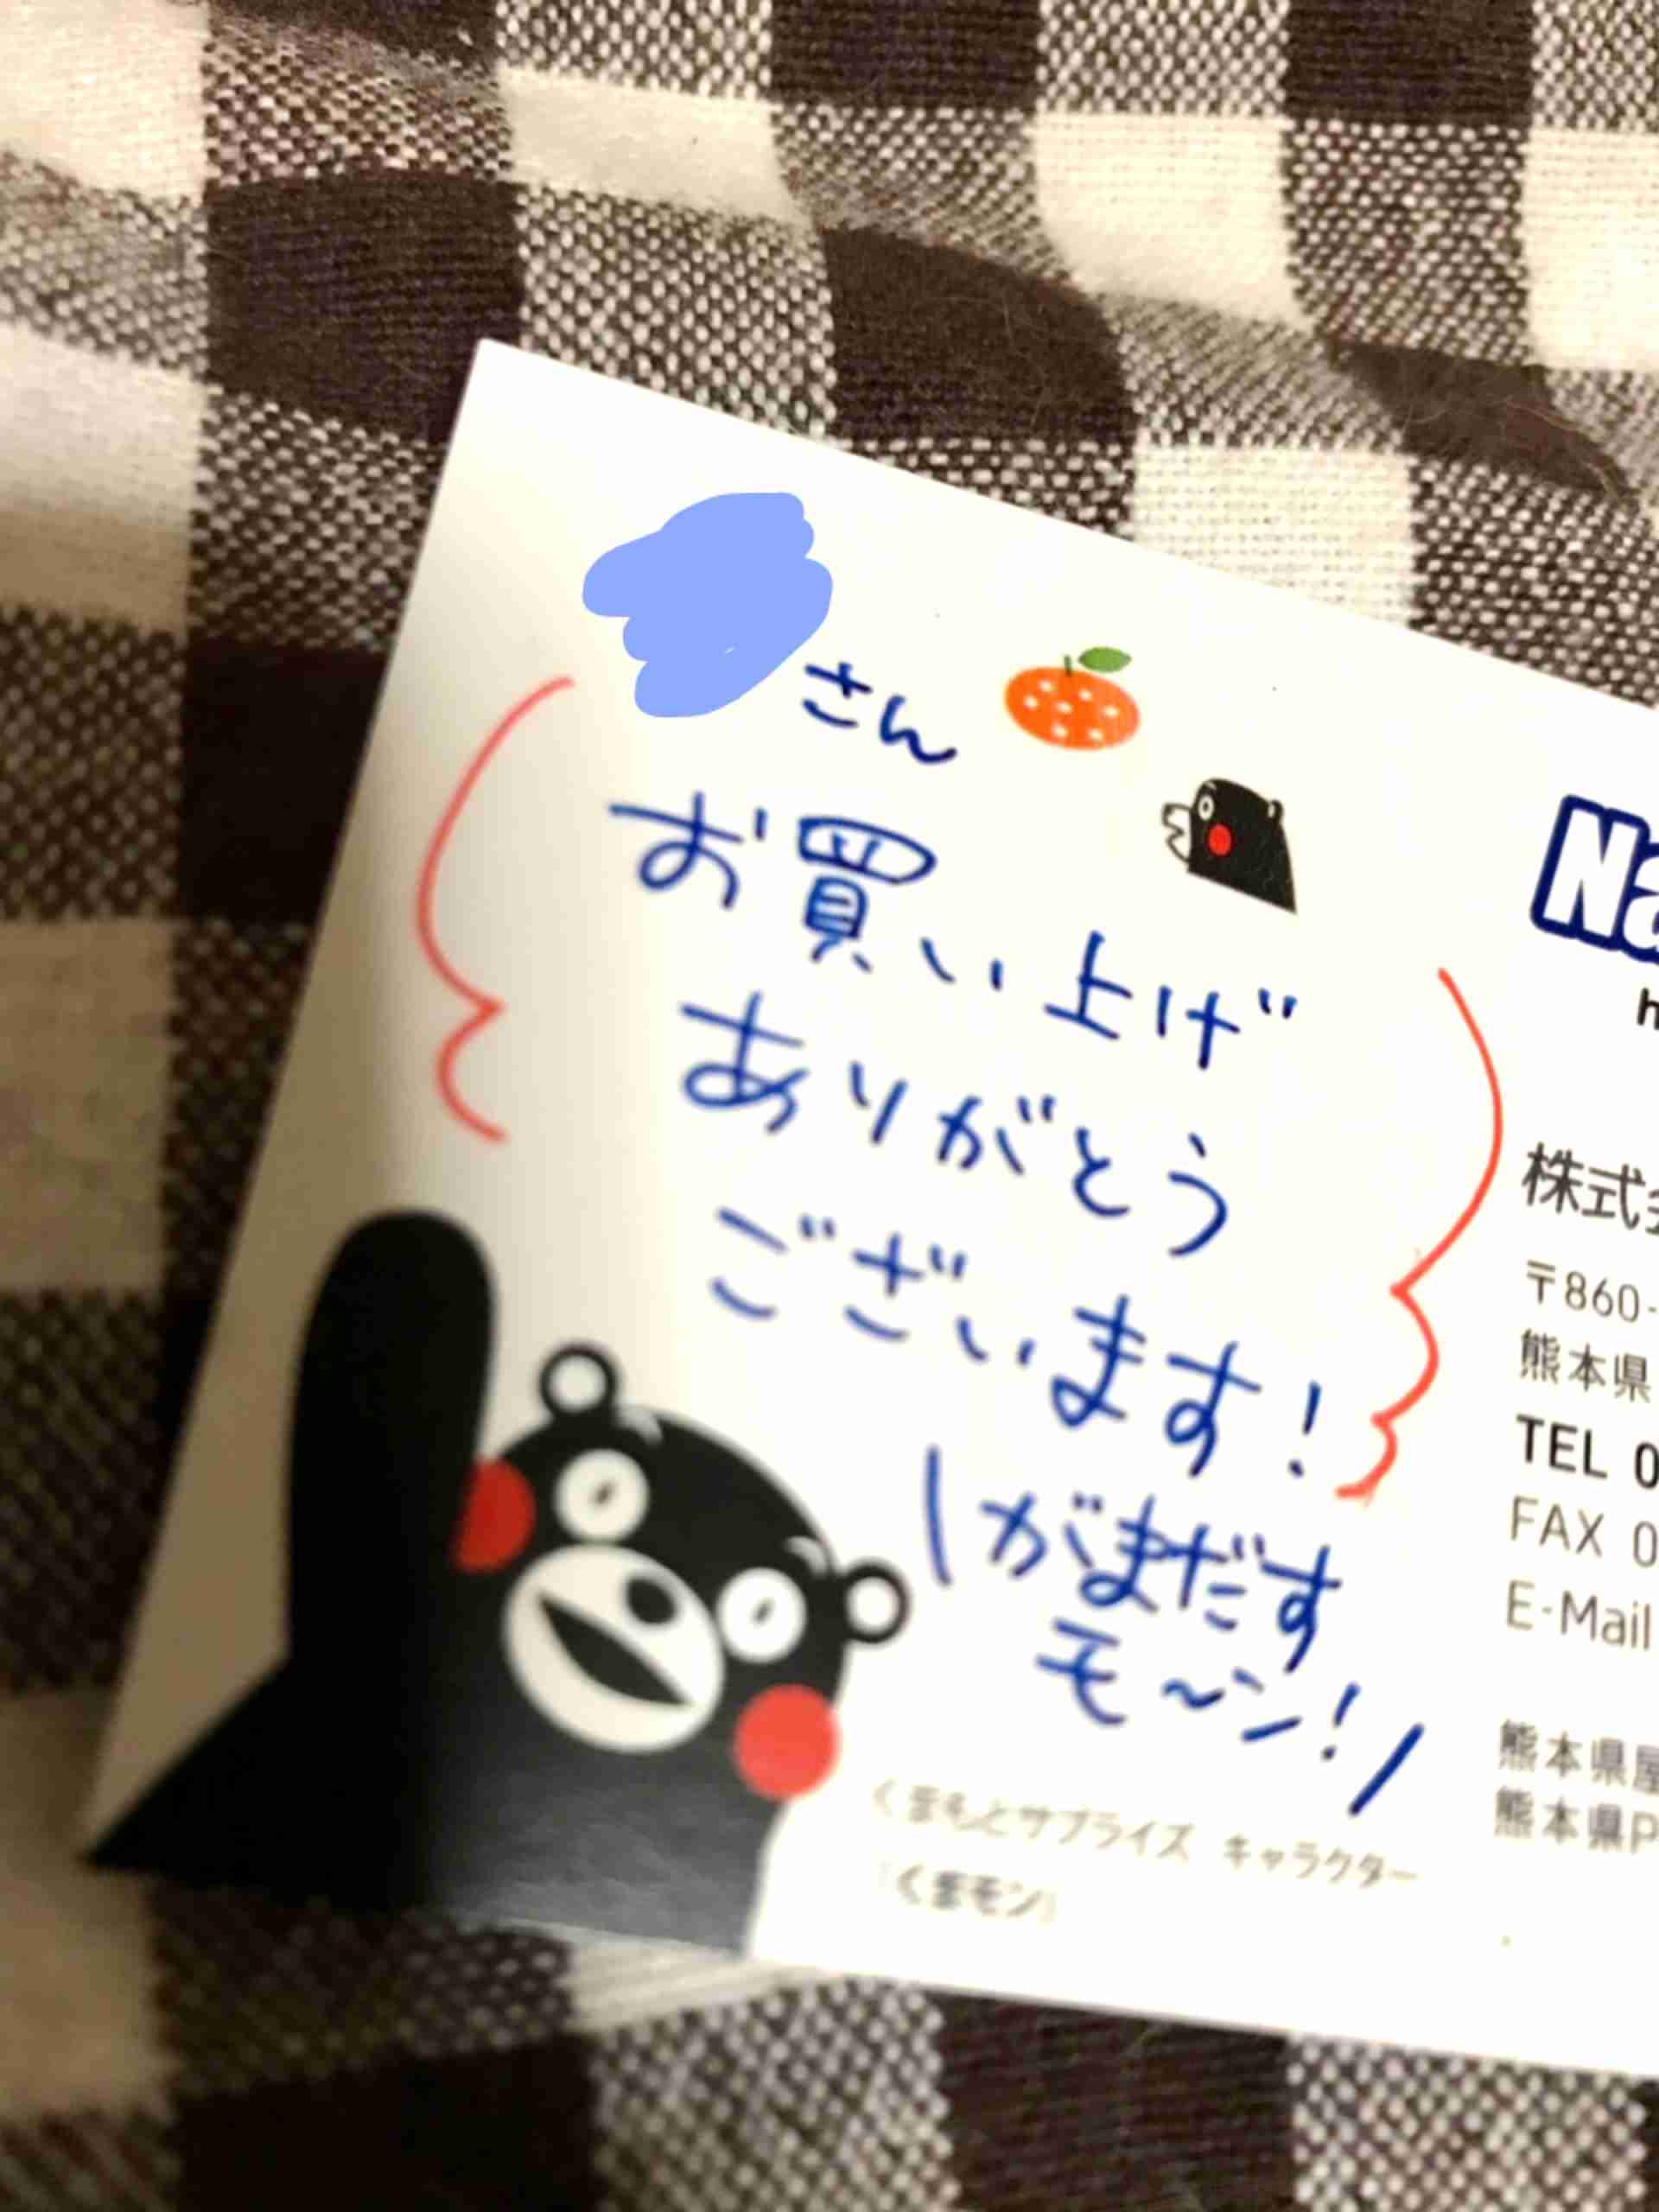 さん
お買い上げ
ありがとう
ございます!
がまだす
モ〜ン!
くまもとサプライズ キャラクター
「くまモン」
Na
h
株式会
〒860-
熊本県
TEL 0
FAX 0
E-Mail
熊本県屋
熊本県P